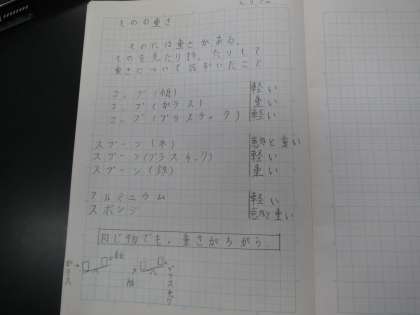 ものの重さ
ものには重さがある。
ものを見たり持ったりして
重さについて話がいたこと
コップ(紙) 軽い
コップ(ガラス) 重い
コップ(プラスチック) 軽い
スプーン(木) 意外と重い
スプーン(プラスチック) 軽い
スプーン(鉄) 重い
アルミニウム 軽い
スポンジ 意外と重い
同じ物でも、重さがちがう。
ガラス
紙
プラスチック